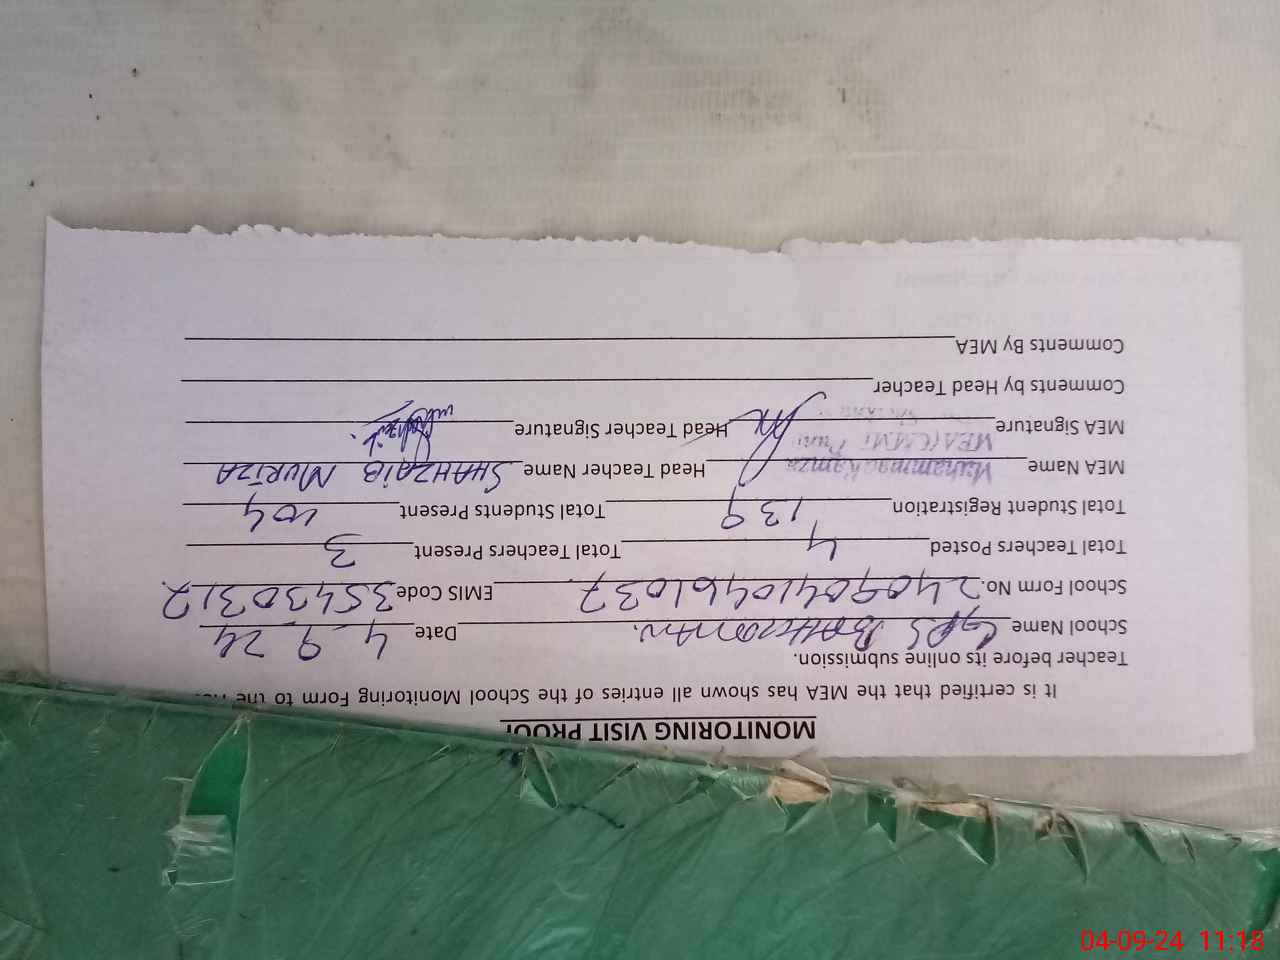 MONITORING VISIT PROOF
It is certified that the MEA has shown all entries of the School Monitoring Form to the
Teacher before its online submission.
School Name GPS Date 4-9-24
School Form No. 24090410461037 EMIS Code 35430312
Total Teachers Posted 4 Total Teachers Present 3
Total Student Registration 139 Total Students Present 104
MEA Name Muhammad Hamza Head Teacher Name SHAHZAIB MURTZA
MEA (CMMi
MEA Signature Head Teacher Signature
Comments by Head Teacher
Comments By MEA
04-09-24 11:18